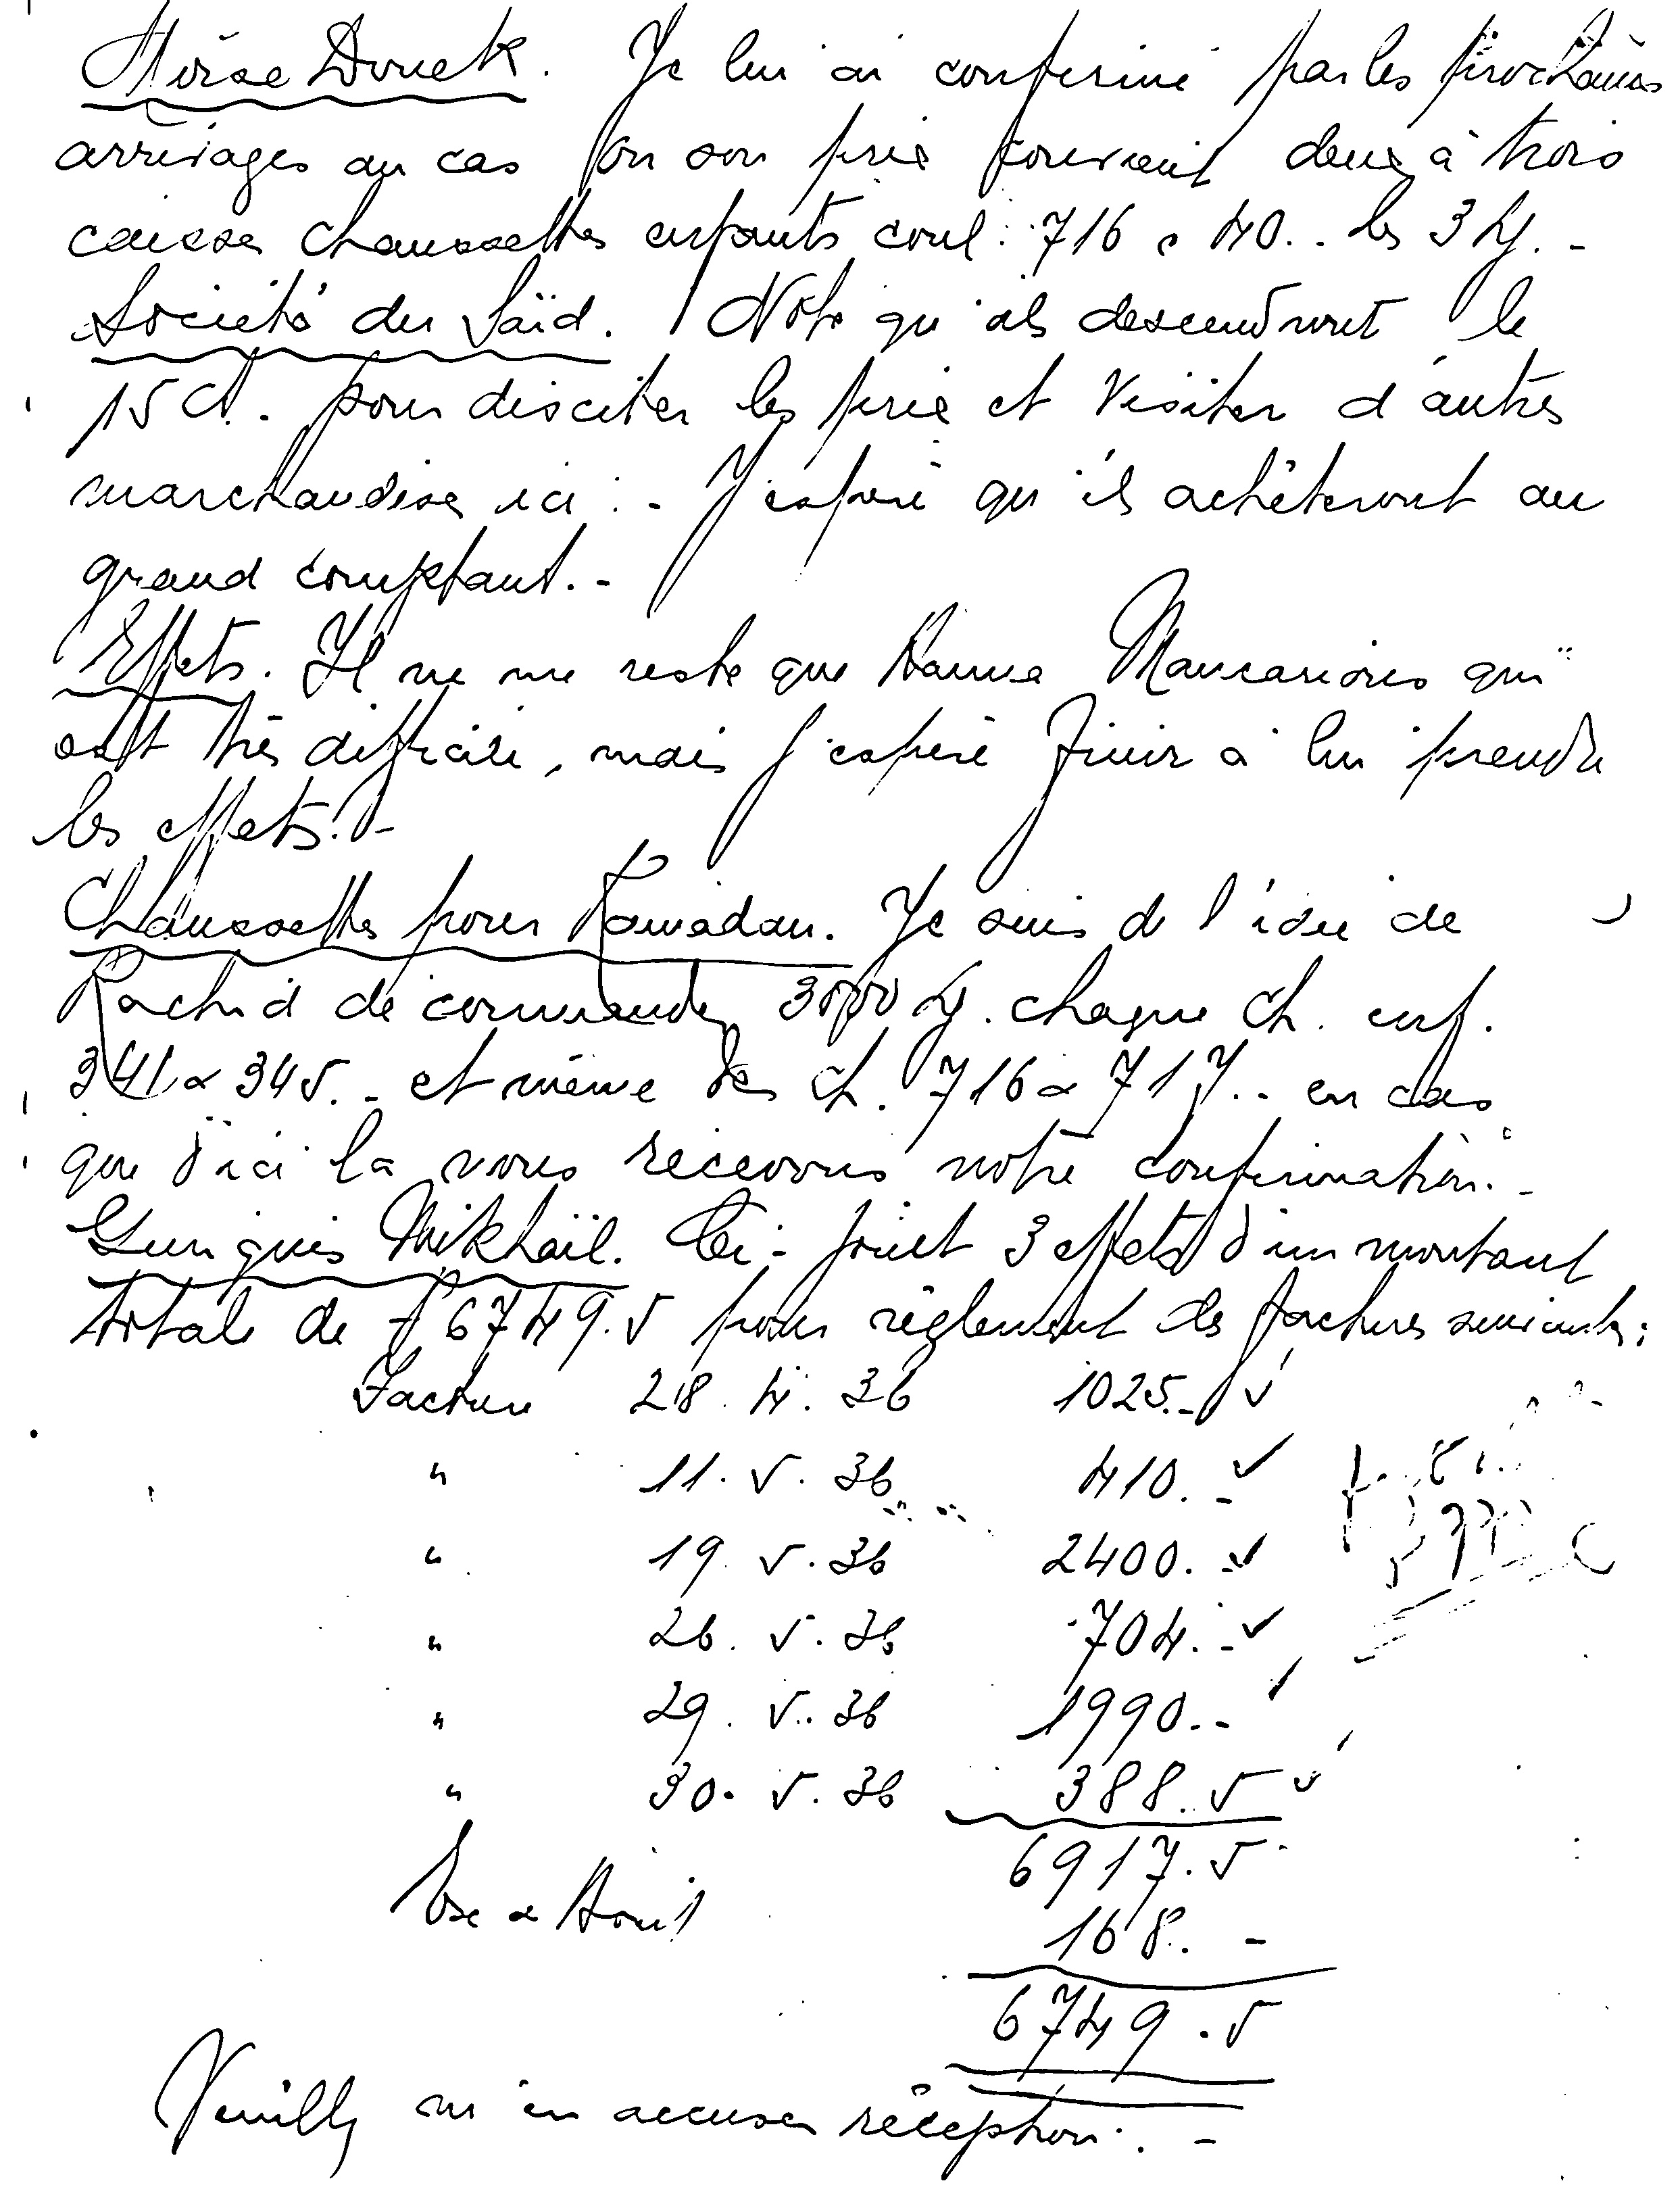 Moïse Douek. Je lui ai confirmé par les prochains
arrivages au cas où son prix convient deux à trois
caisses chaussettes enfants coul. 716 à 40.- les 3 dz.-
Société du Saïd. Note qu'ils descendront le
15 ct. pour discuter les prix et visiter d'autres
marchandises ici.- J'espère qu'ils achèteront au
grand comptant.-
Effets. Il ne me reste que Hanna qui
est très difficile, mais j'espère finir à lui prendre
les effets.-
Chaussettes pour Ramadan. Je suis de l'idée de
Rachid de commander 3000 dz. chaque ch. enf.
341 & 345.- et même des ch. 716 & 717.- en cas
que d'ici là vous recevons notre confirmation.-
Guirguis Mikhaïl. Ci-joint 3 effets d'un montant
totale de 6749.5 pour règlement des factures suivantes:
Facture 28.4.36 1025.-
" 11.5.36 410.-
" 19.5.36 2400.-
" 26.5.36 704.-
" 29.5.36 1990.-
" 30.5.36 388.5
6917.5
Esc à 168.-
6749.5
Veuillez m'en accuser réception.-